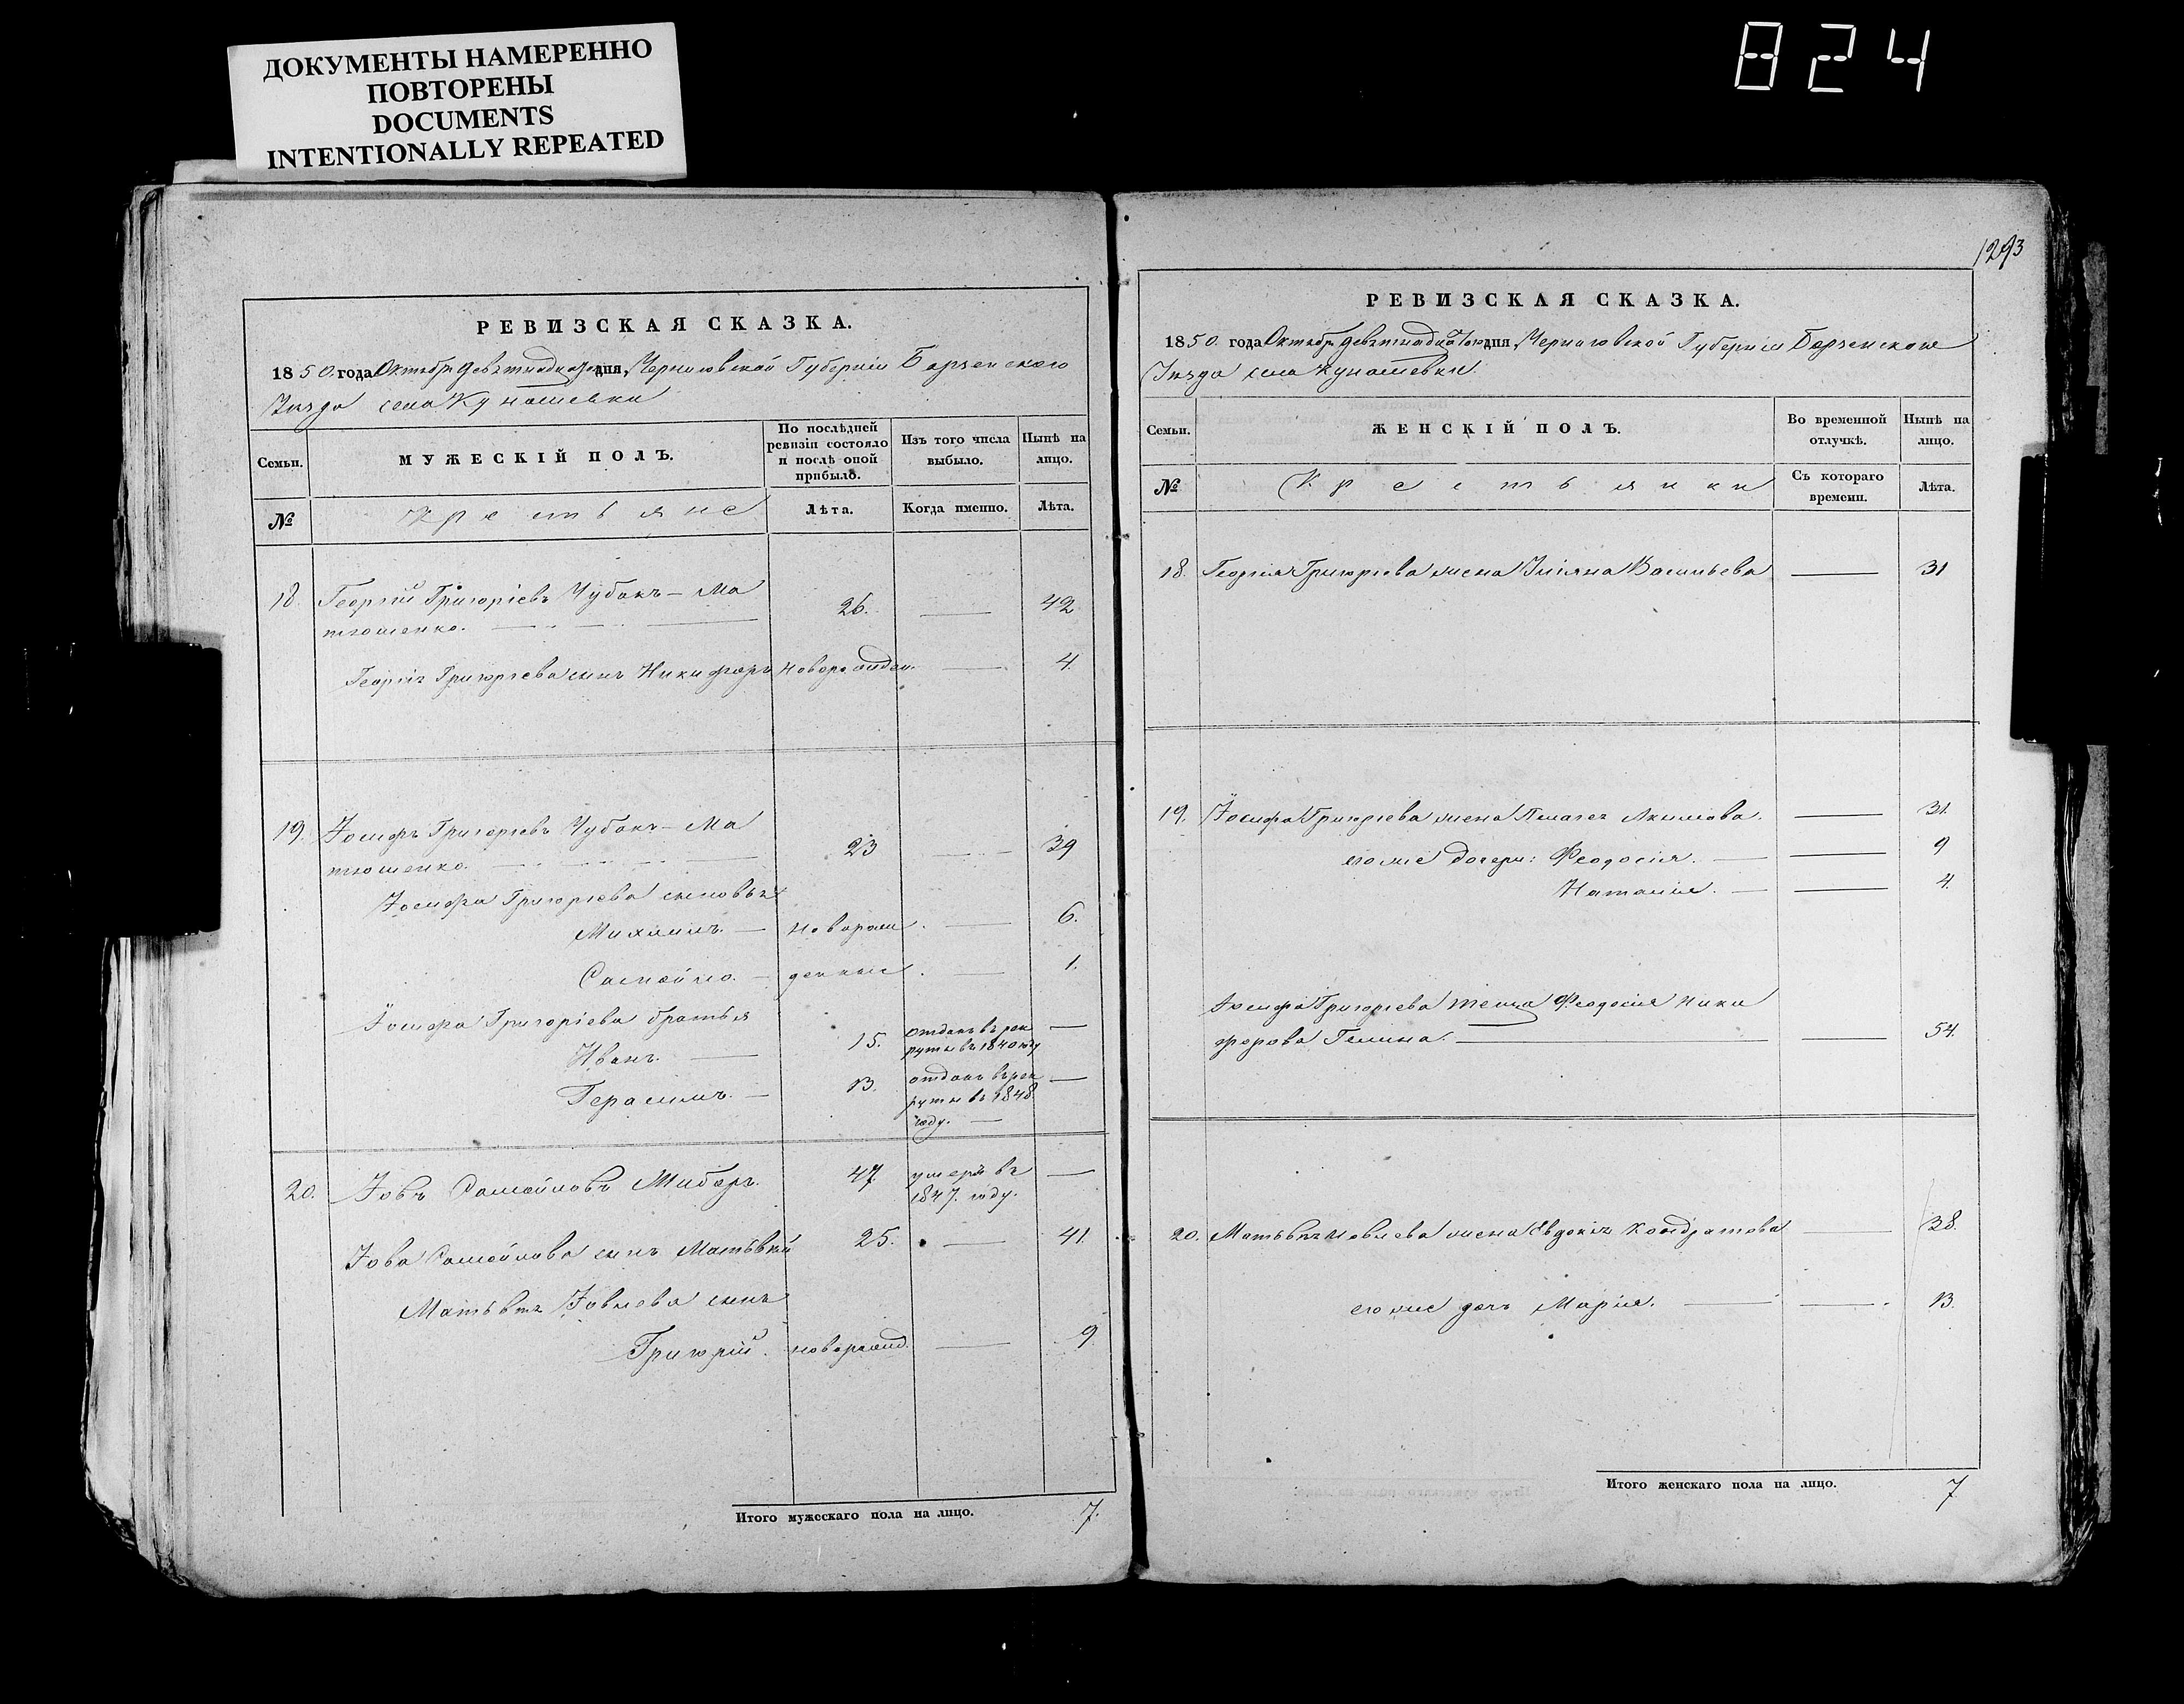 ДОКУМЕНТЫ НАМЕРЕННО
ПОВТОРЕНЫ
DOCUMENTS
INTENTIONALLY REPEATED
824
РЕВИЗСКАЯ СКАЗКА.
1850. года Октября девятнадцатого дня, Черниговской Губерніи Борзенского
Уезда села Кунашевки
Семьи.
МУЖЕСКІЙ ПОЛЪ.
По послѣдней ревизіи состояло и послѣ оной прибыло.
Изъ того числа выбыло.
Нынѣ на лицо.
№
Крестьяне
Лѣта.
Когда именно.
Лѣта.
18. Георгій Григоріевъ Чубакъ-Ма
тюшенко. 26. — 42
Георгія Григоріева сынъ Никифоръ новорожден. — 4.
19. Іосифъ Григоріевъ Чубакъ-Ма
тюшенко. 23 — 39
Іосифа Григоріева сыновья
Михаилъ. — новорож — 6.
Самойло. — денные — 1.
Іосифа Григоріева братья
Иванъ. — 15. отданъ въ рек —
руты въ 1840 году
Герасимъ. — 13. отданъ въ рек —
руты въ 1848
году. —
20. Іовъ Самойловъ Шибыръ. 47 умеръ въ —
1847. году.
Іова Самойлова сынъ Матвѣй 25. — 41
Матвѣя Іовлева сынъ
Григорій. новорожд. — 9
Итого мужескаго пола на лицо. 7.
1293
РЕВИЗСКАЯ СКАЗКА.
1850. года Октября девятнадцатого дня, Черниговской Губерніи Борзенского
Уезда села Кунашевки
Семьи.
ЖЕНСКІЙ ПОЛЪ.
Во временной отлучкѣ.
Нынѣ на лицо.
№
Крестьянки
Съ котораго времени.
Лѣта.
18. Георгія Григоріева жена Уліяна Васильева — 31
19. Іосифа Григоріева жена Пелагея Акимова. — 31.
его же дочери: Феодосія. — 9
Наталія. — 4.
Іосифа Григоріева теща Феодосія Ники
форова — 54.
20. Матвѣя Иовлева жена Евдокія Кондратова — 38.
его же дочь Марія. — 13.
Итого женскаго пола на лицо. 7